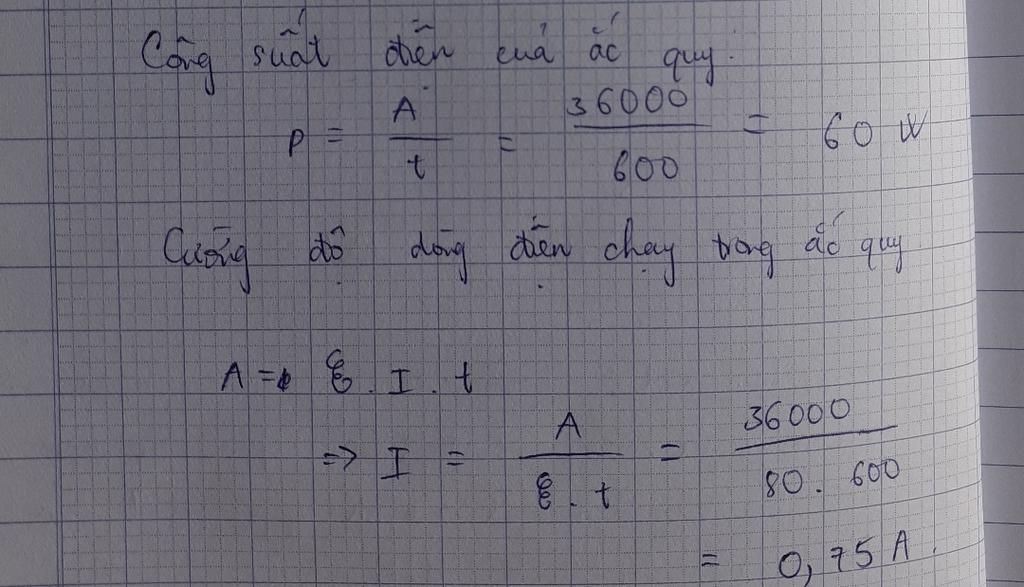 Công suất điện của ắc quy.
P = A / t = 36000 / 600 = 60 W
Cường độ dòng điện chạy trong ắc quy
A = ℰ . I . t
=> I = A / ℰ . t = 36000 / 80 . 600
= 0,75 A.